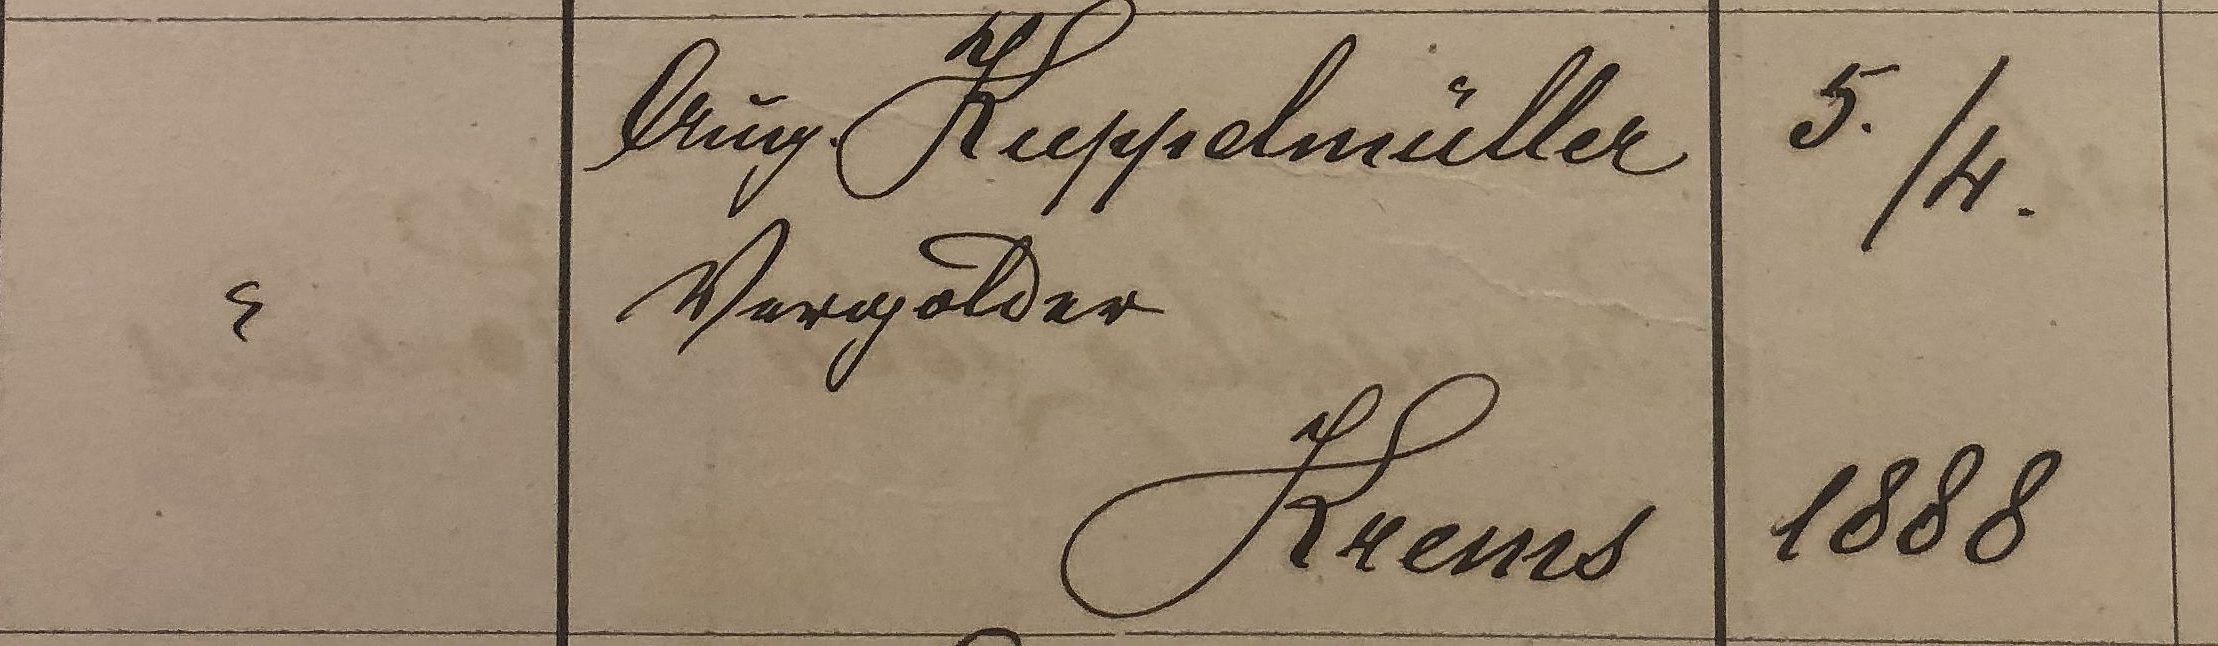 Aug. Kuppelmüller 5./4.
Vergolder
Krems 1888